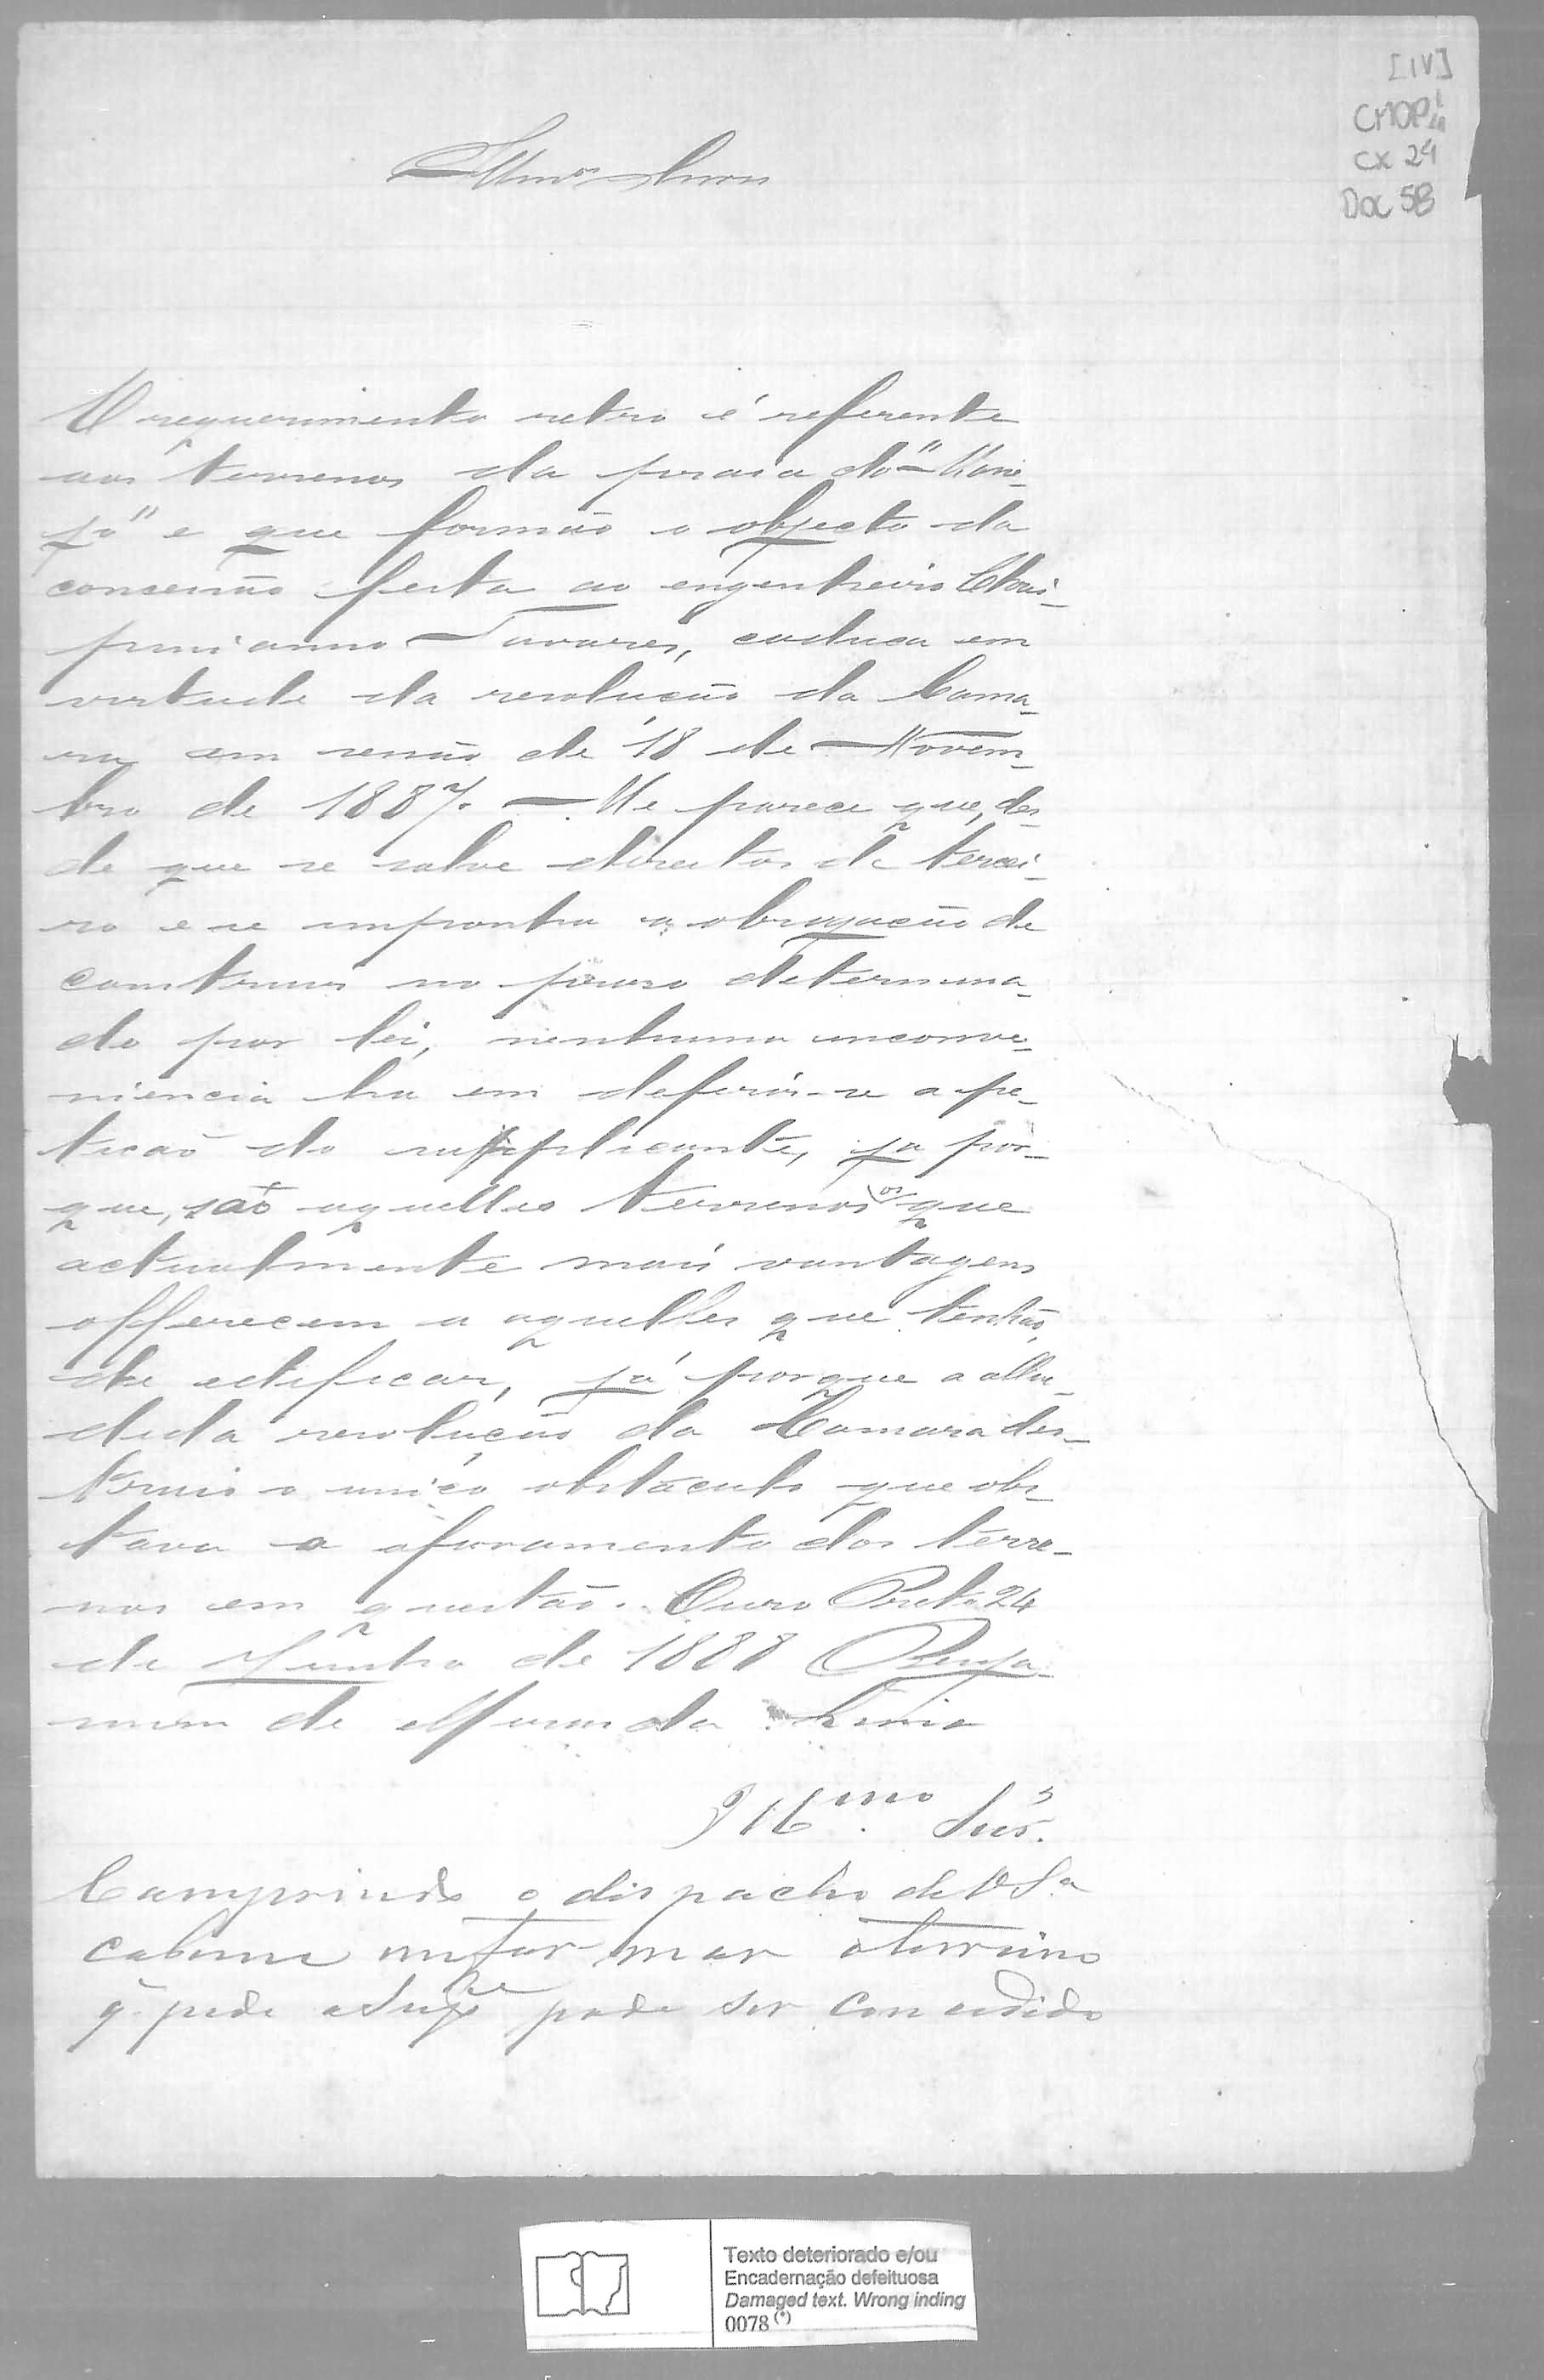 [IV]
CMOP
CX 24
Doc 58
Illmos Snres
O requerimento retro é referente
aos terrenos da praia do "
" e que formão o objecto da
concessão feita ao engenheiro Chris-
pinianno Tavares, caduca em
virtude da resolução da Cama-
ra em sessão de 18 de Novem-
bro de 1887. — Me parece que, des-
de que se salve direitos de tercei-
ro e se imponha a obrigação de
construir no praso determina-
do por lei, nenhuma inconve-
niencia ha em deferir-se a pe-
ticaõ do supplicante, ja por-
que, saõ aquelles terrenos os que
actualmente mais vantagens
offerecem a aquelles que tenhão
de edificar, já porque a allu-
dida resolução da Camara des-
truio o unico obstaculo que obs-
tava o aforamento dos terre-
nos em questão. Ouro Preto 24
de Junho de 1888 Benja-
mim de Miranda Lima
Snrs.
Comprindo o dispacho de V Sa
cabeme informar o terreino
q̃ pede o Supe pode ser concedido
Texto deteriorado e/ou
Encadernação defeituosa
Damaged text. Wrong inding
0078 (*)